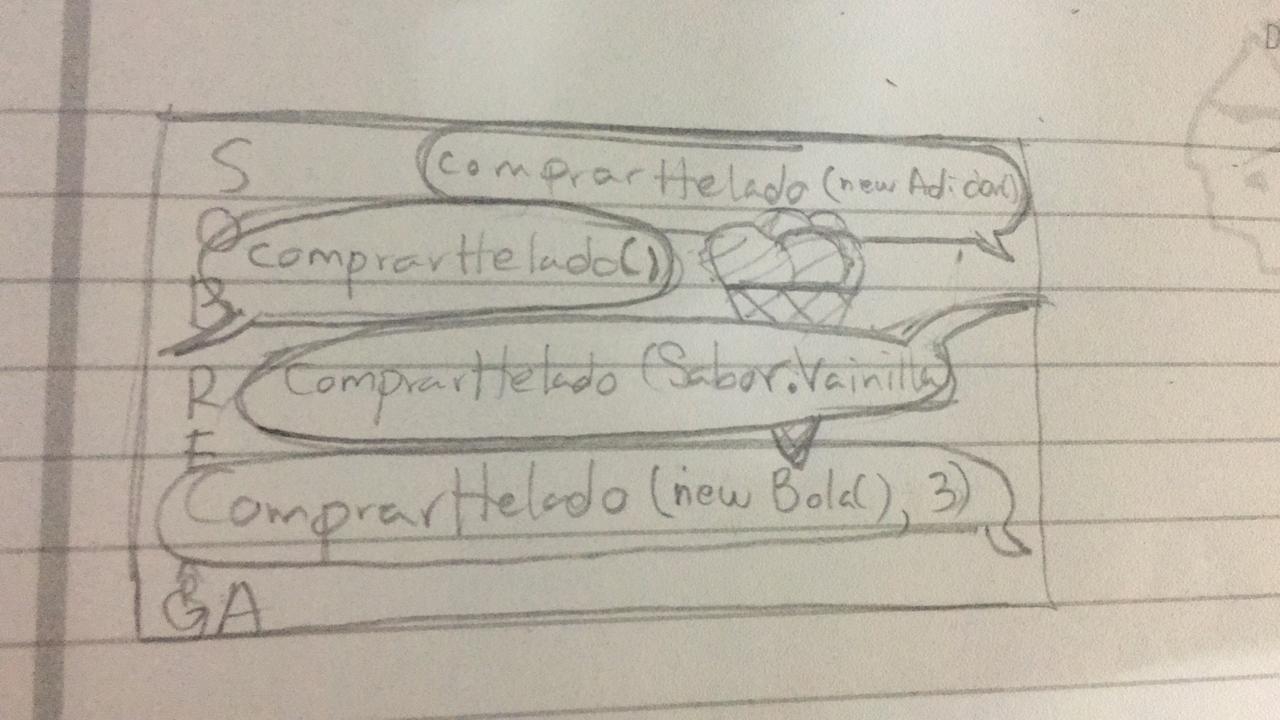 S
comprarHelado (new Adicion()
O
comprarHelado()
B
R
ComprarHelado (Sabor.Vainilla)
E
ComprarHelado (new Bola(), 3)
GA
D